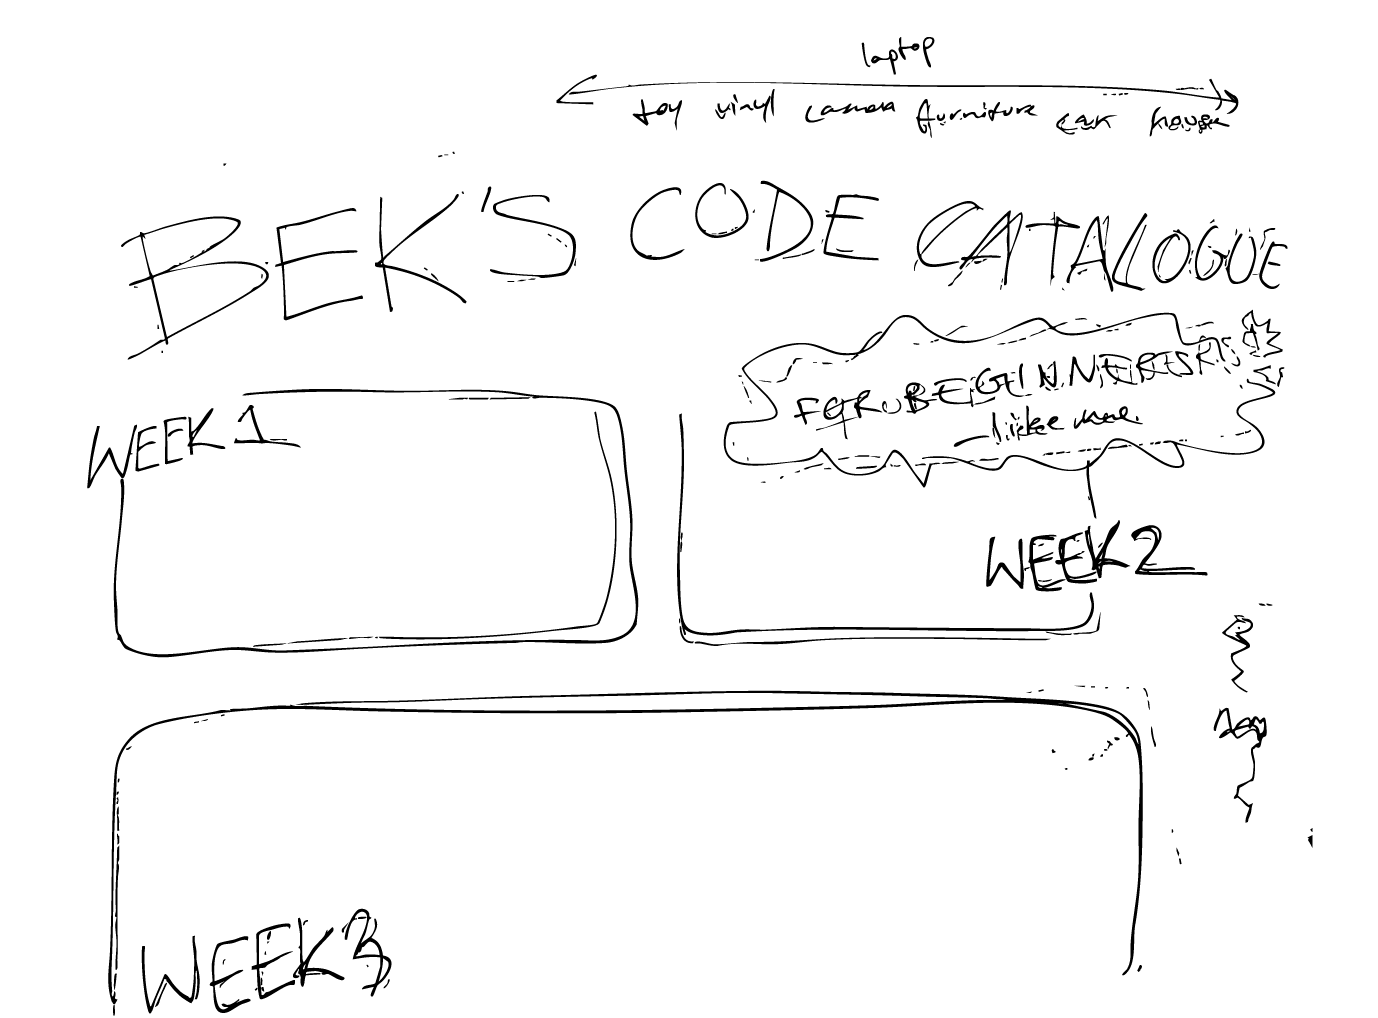 laptop
toy vinyl camera furniture car house
BEK'S CODE CATALOGUE
FOR BEGINNERS
– like me.
WEEK 1
WEEK 2
WEEK 3